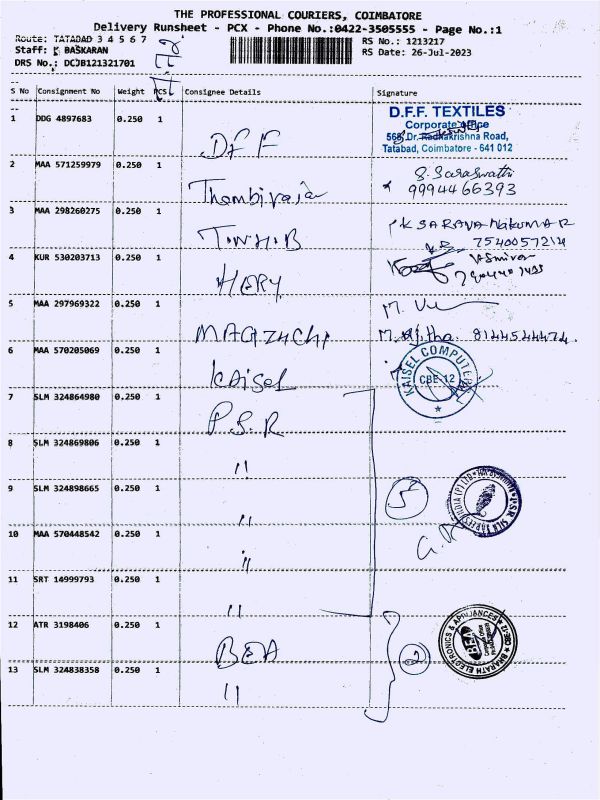 THE PROFESSIONAL COURIERS, COIMBATORE
Delivery Runsheet - PCX - Phone No.:0422-3505555 - Page No.:1
Route: TATABAD 3 4 5 6 7
RS No.: 1213217
Staff: K BASKARAN
RS Date: 26-Jul-2023
DRS No.: DCJB121321701
S No Consignment No Weight PCS Consignee Details Signature
1 DDG 4897683 0.250 1 DFF
D.F.F. TEXTILES
Corporate Office
566, Dr. Radhakrishna Road,
Tatabad, Coimbatore - 641 012
2 MAA 571259979 0.250 1 Thambiraja S. Saraswathi
9994466393
3 MAA 298260275 0.250 1 T.N.H.B P.K SARAVANAKUMAR
7540057214
4 KUR 530203713 0.250 1 HARY
5 MAA 297969322 0.250 1 MAGZUCHI M. Ajitha. 8144544474.
6 MAA 570205069 0.250 1 KAISEL KAISEL COMPUTER CBE-12
7 SLM 324864980 0.250 1 P.S.R
8 SLM 324869806 0.250 1 "
9 SLM 324898665 0.250 1 " 5
10 MAA 570448542 0.250 1 "
11 SRT 14999793 0.250 1 "
12 ATR 3198406 0.250 1 BEA 2 BHARATH ELECTRONICS & APPLIANCES CBE-12 BEA
13 SLM 324838358 0.250 1 "